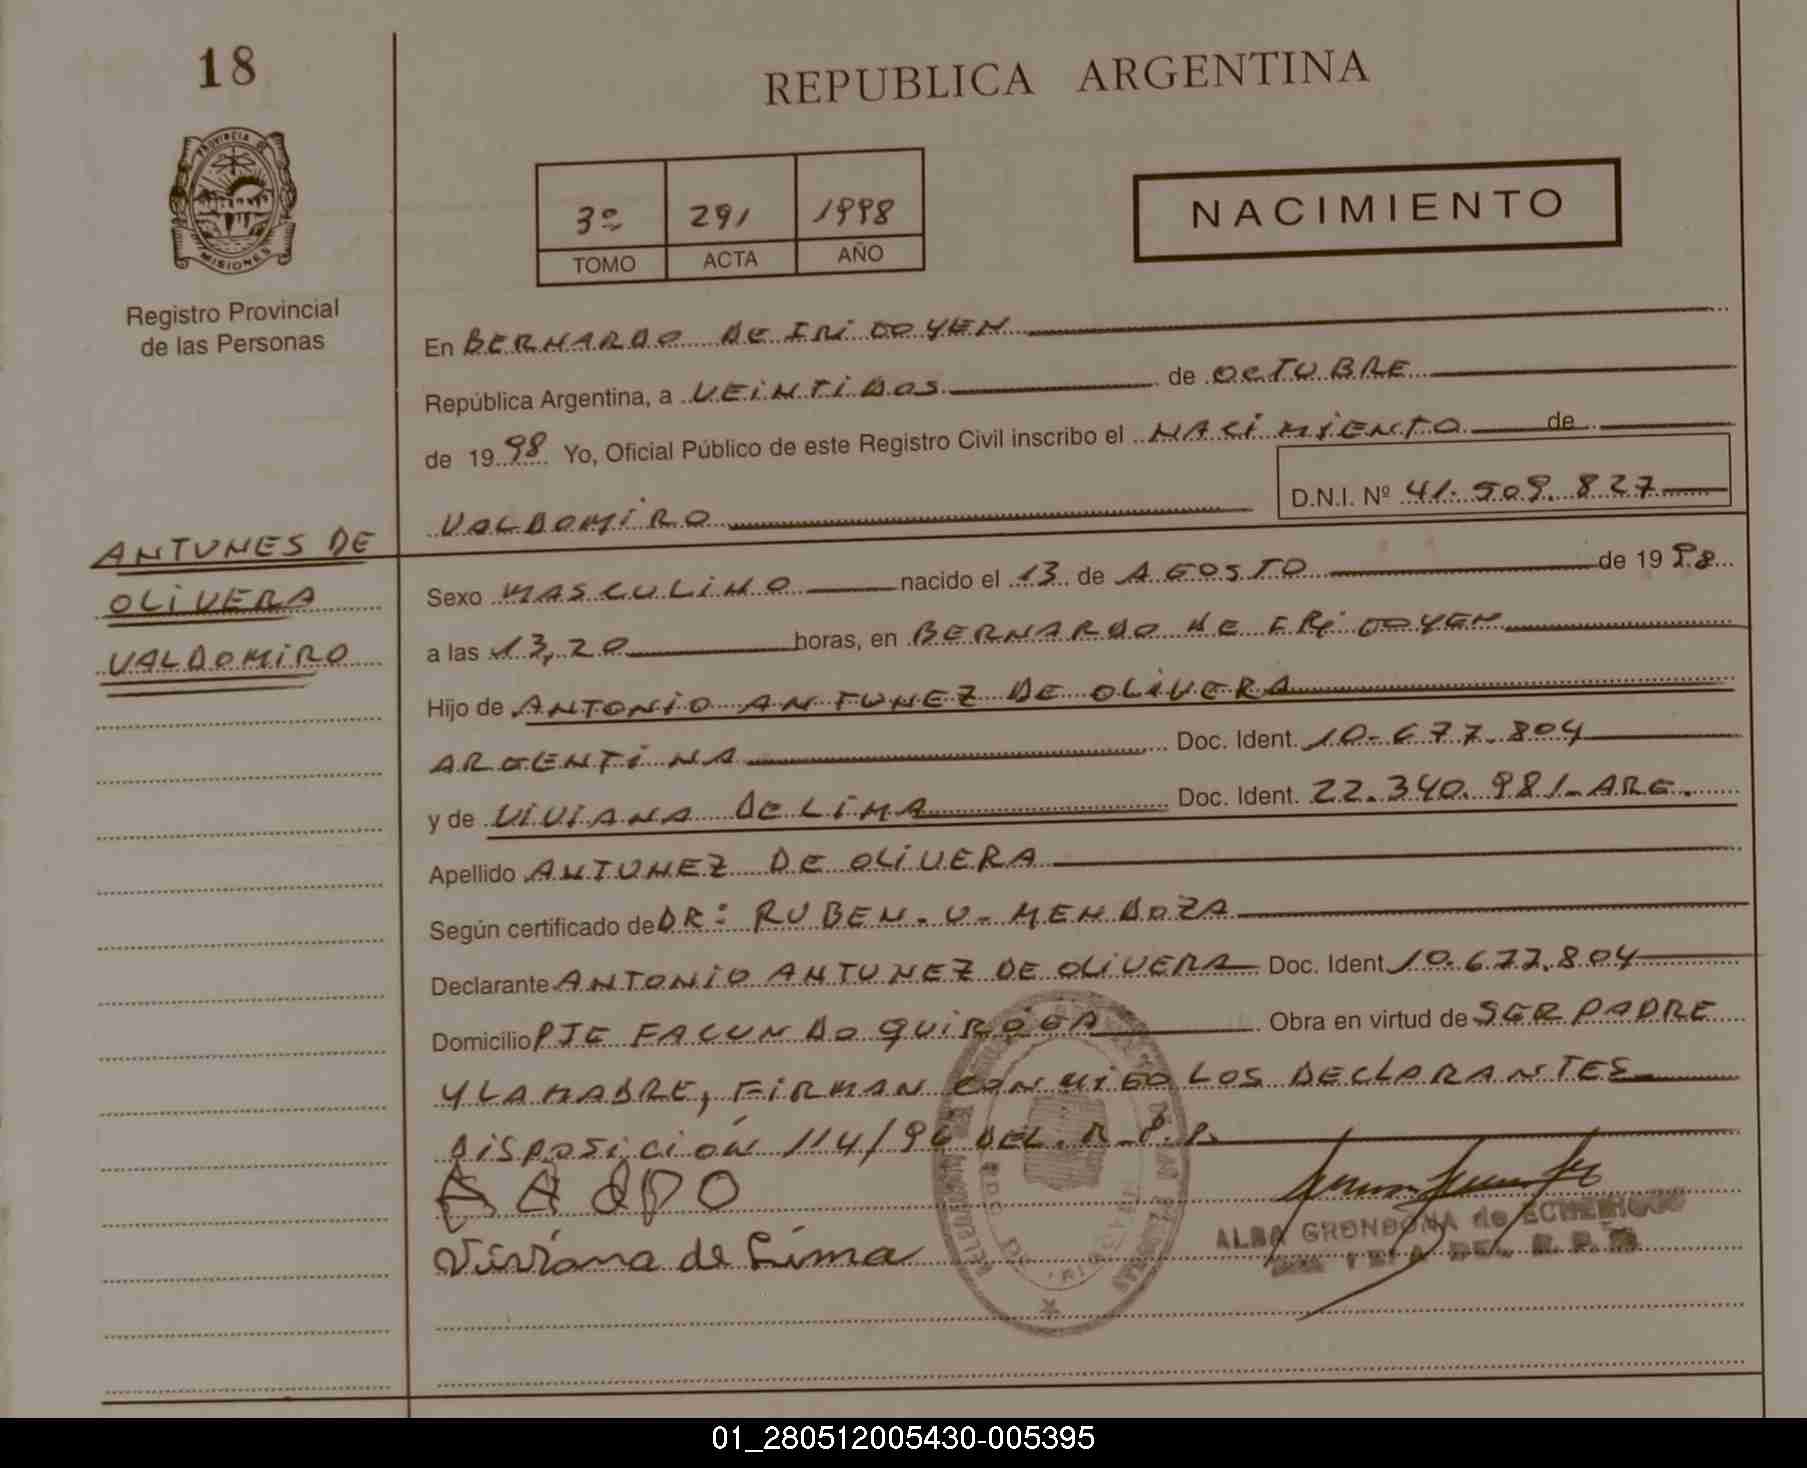 18
REPUBLICA ARGENTINA
PROVINCIA DE
MISIONES
Registro Provincial
de las Personas
3º 291 1998
TOMO ACTA AÑO
NACIMIENTO
En BERNARDO DE IRIGOYEN
República Argentina, a VEINTIDOS de OCTUBRE
de 1998 Yo, Oficial Público de este Registro Civil inscribo el NACIMIENTO de
VALDOMIRO D.N.I. Nº 41.509.827
ANTUNES DE
OLIVERA
VALDOMIRO
Sexo MASCULINO nacido el 13 de AGOSTO de 1998
a las 13,20 horas, en BERNARDO DE IRIGOYEN
Hijo de ANTONIO ANTUNEZ DE OLIVERA
ARGENTINA Doc. Ident. 10.677.804
y de VIVIANA DE LIMA Doc. Ident. 22.340.981-ARG.
Apellido ANTUNEZ DE OLIVERA
Según certificado de DR: RUBEN.V. MENDOZA
Declarante ANTONIO ANTUNEZ DE OLIVERA Doc. Ident 10.677.804
Domicilio PJE FACUNDO QUIROGA Obra en virtud de SER PADRE
Y LA MADRE, FIRMAN CONMIGO LOS DECLARANTES
DISPOSICIÓN 114/96 DEL R.P.P.
Viviana de Lima
ALBA GRONDONA de
DEL R.P.P.
01_280512005430-005395